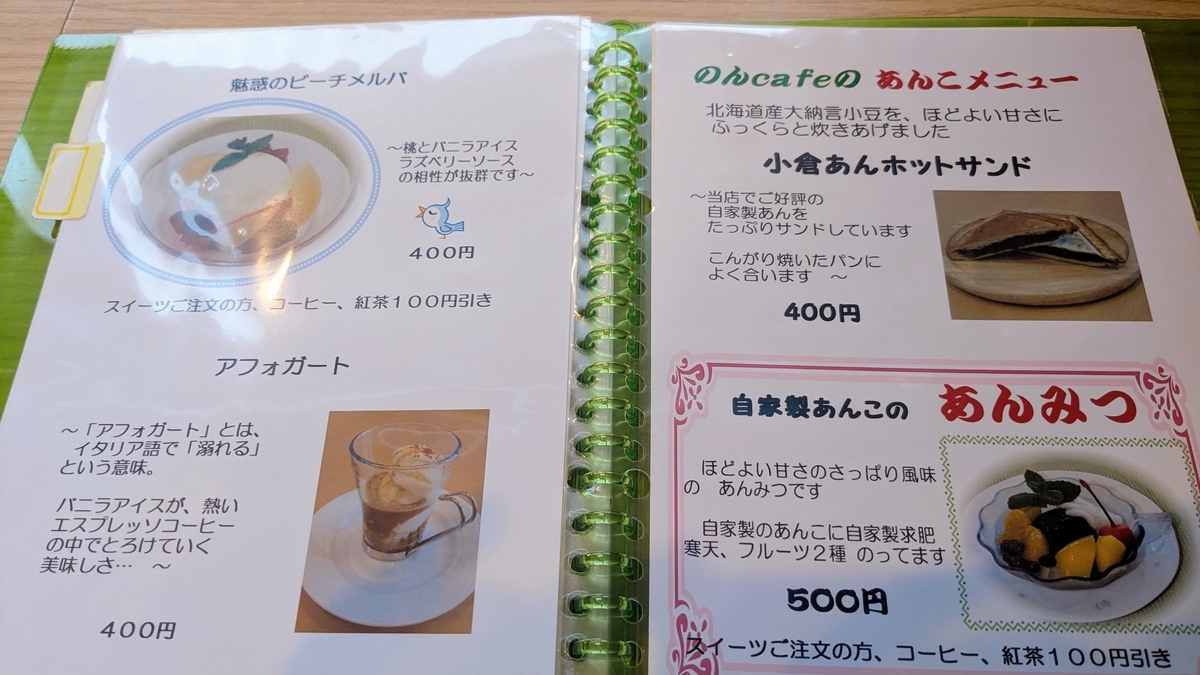 魅惑のピーチメルバ
～桃とバニラアイス
ラズベリーソース
の相性が抜群です～
400円
スイーツご注文の方、コーヒー、紅茶100円引き
アフォガート
～「アフォガート」とは、
イタリア語で「溺れる」
という意味。
バニラアイスが、熱い
エスプレッソコーヒー
の中でとろけていく
美味しさ… ～
400円
のんcafeの あんこメニュー
北海道産大納言小豆を、ほどよい甘さに
ふっくらと炊きあげました
小倉あんホットサンド
～当店でご好評の
自家製あんを
たっぷりサンドしています
こんがり焼いたパンに
よく合います ～
400円
自家製あんこの あんみつ
ほどよい甘さのさっぱり風味
の あんみつです
自家製のあんこに自家製求肥
寒天、フルーツ2種 のってます
500円
スイーツご注文の方、コーヒー、紅茶100円引き